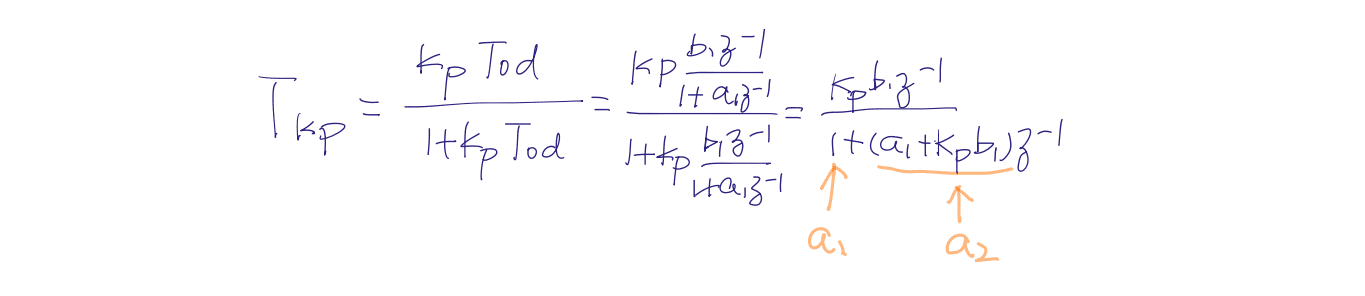 T_{kp} = \frac{k_p T_{od}}{1+k_p T_{od}} = \frac{k_p \frac{b_1 z^{-1}}{1+a_1 z^{-1}}}{1+k_p \frac{b_1 z^{-1}}{1+a_1 z^{-1}}} = \frac{k_p b_1 z^{-1}}{1+(a_1+k_p b_1)z^{-1}}
↑ ↑
a_1 a_2